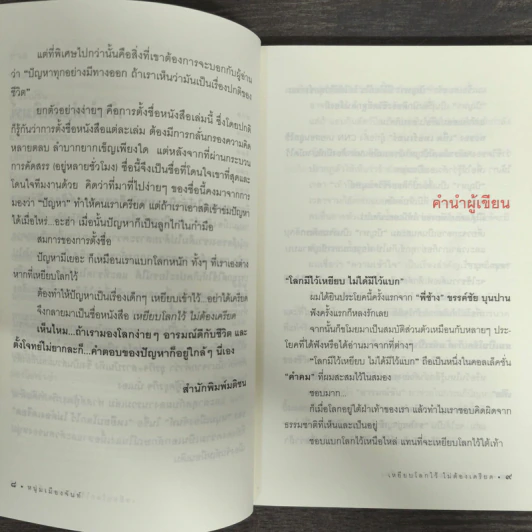 แต่ที่พิเศษไปกว่านั้นคือสิ่งที่เขาต้องการจะบอกกับผู้อ่าน
ว่า "ปัญหาทุกอย่างมีทางออก ถ้าเราเห็นว่ามันเป็นเรื่องปกติของ
ชีวิต"
ยกตัวอย่างง่ายๆ คือการตั้งชื่อหนังสือเล่มนี้ ซึ่งโดยปกติ
ก็รู้กันว่าการตั้งชื่อหนังสือแต่ละเล่ม ต้องมีการกลั่นกรองความคิด
หลายตลบ ลำบากยากเข็ญเพียงใด แต่หลังจากที่ผ่านกระบวน
การคัดสรร (อยู่หลายชั่วโมง) ชื่อนี้จึงเป็นชื่อที่โดนใจเขาที่สุดและ
โดนใจทีมงานด้วย คิดว่าที่มาที่ไปง่ายๆ ของชื่อนี้คงมาจากการ
มองว่า "ปัญหา" ทำให้คนเราเครียด แต่ถ้าเราเอาสติเข้าข่มปัญหา
ได้เมื่อไหร่..อะฮ่า เมื่อนั้นปัญหาก็เป็นลูกไก่ในกำมือ
สมการของการตั้งชื่อ
ปัญหามีเยอะ ก็เหมือนเราแบกโลกหนัก ทั้งๆ ที่เราเองต่าง
หากที่เหยียบโลกไว้
ต้องทำให้ปัญหาเป็นเรื่องเด็กๆ เหยียบเข้าไว้...อย่าได้เครียด
จึงกลายมาเป็นชื่อหนังสือ เหยียบโลกไว้ ไม่ต้องเครียด
เห็นไหม...ถ้าเรามองโลกง่ายๆ อารมณ์ดีกับชีวิต และ
ตั้งโจทย์ไม่ยากละก็...คำตอบของปัญหาก็อยู่ใกล้ๆ นี่เอง
สำนักพิมพ์มติชน
๘ • หนุ่มเมืองจันท์
คำนำผู้เขียน
"โลกมีไว้เหยียบ ไม่ได้มีไว้แบก"
ผมได้ยินประโยคนี้ครั้งแรกจาก "พี่ช้าง" ขรรค์ชัย บุนปาน
ฟังครั้งแรกก็หลงรักเลย
จากนั้นก็ขโมยมาเป็นสมบัติส่วนตัวเหมือนกับหลายๆ ประ-
โยคที่ได้ฟังหรือได้อ่านมาจากที่ต่างๆ
"โลกมีไว้เหยียบ ไม่ได้มีไว้แบก" ถือเป็นหนึ่งในคอลเล็คชั่น
"คำคม" ที่ผมสะสมไว้ในสมอง
ชอบมาก...
ก็เมื่อโลกอยู่ใต้ฝ่าเท้าของเรา แล้วทำไมเราชอบคิดผิดจาก
ธรรมชาติที่เห็นและเป็นอยู่
ชอบแบกโลกไว้เหนือไหล่ แทนที่จะเหยียบโลกไว้ใต้เท้า
เหยียบโลกไว้ ไม่ต้องเครียด • ๙